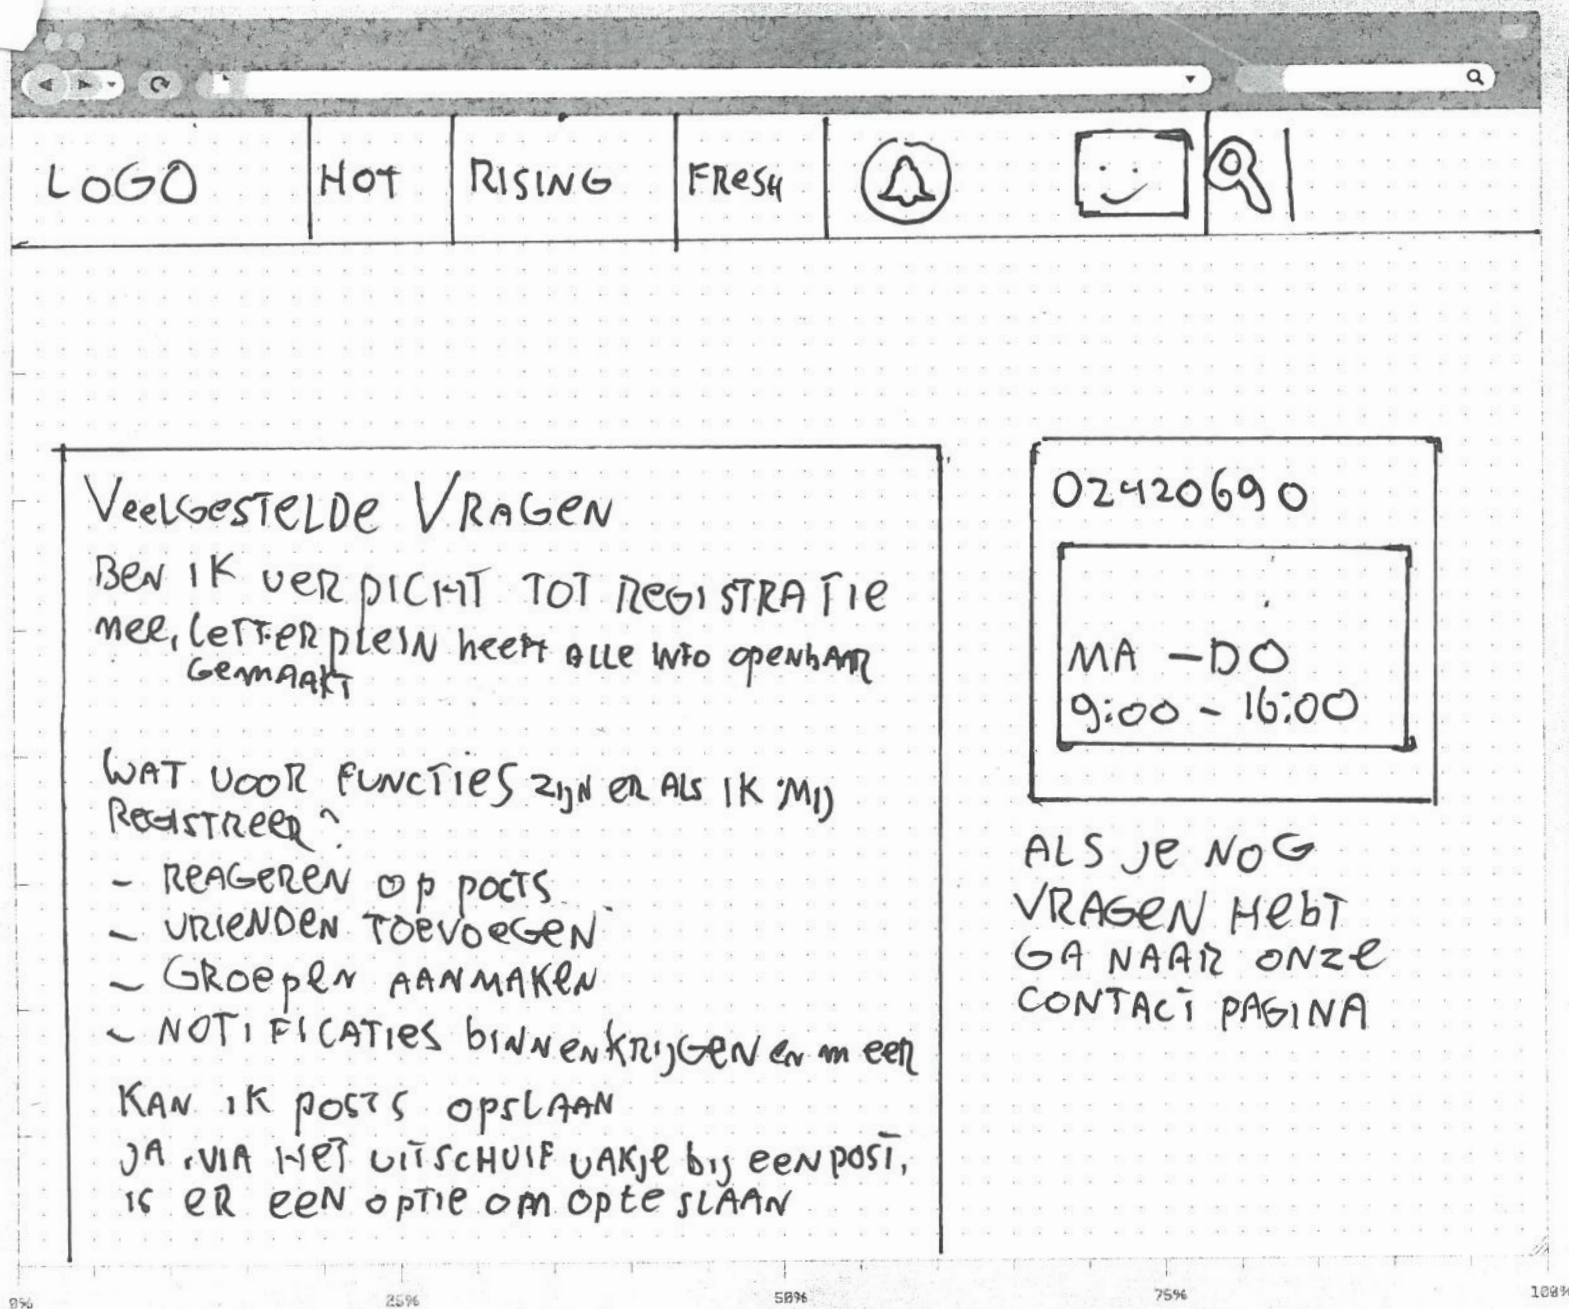 LOGO HOT RISING FRESH
Veelgestelde Vragen
Ben ik verpicht tot registratie
nee, letterplein heeft alle info openbaar
gemaakt
Wat voor functies zijn er als ik mij
registreer?
- reageren op posts
- vrienden toevoegen
- groepen aanmaken
- notificaties binnenkrijgen en meer
Kan ik posts opslaan
Ja, via het uitschuif vakje bij een post,
is er een optie om op te slaan
02420690
MA - DO
9:00 - 16:00
Als je nog
vragen hebt
ga naar onze
contact pagina
0% 25% 50% 75% 100%